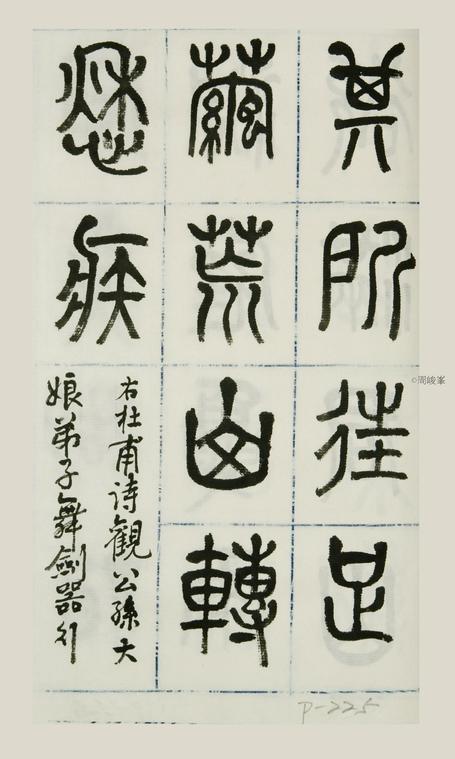 其所往足
繭荒山轉
愁疾
右杜甫詩觀公孫大
娘弟子舞劍器行
©周峻峯
P-225